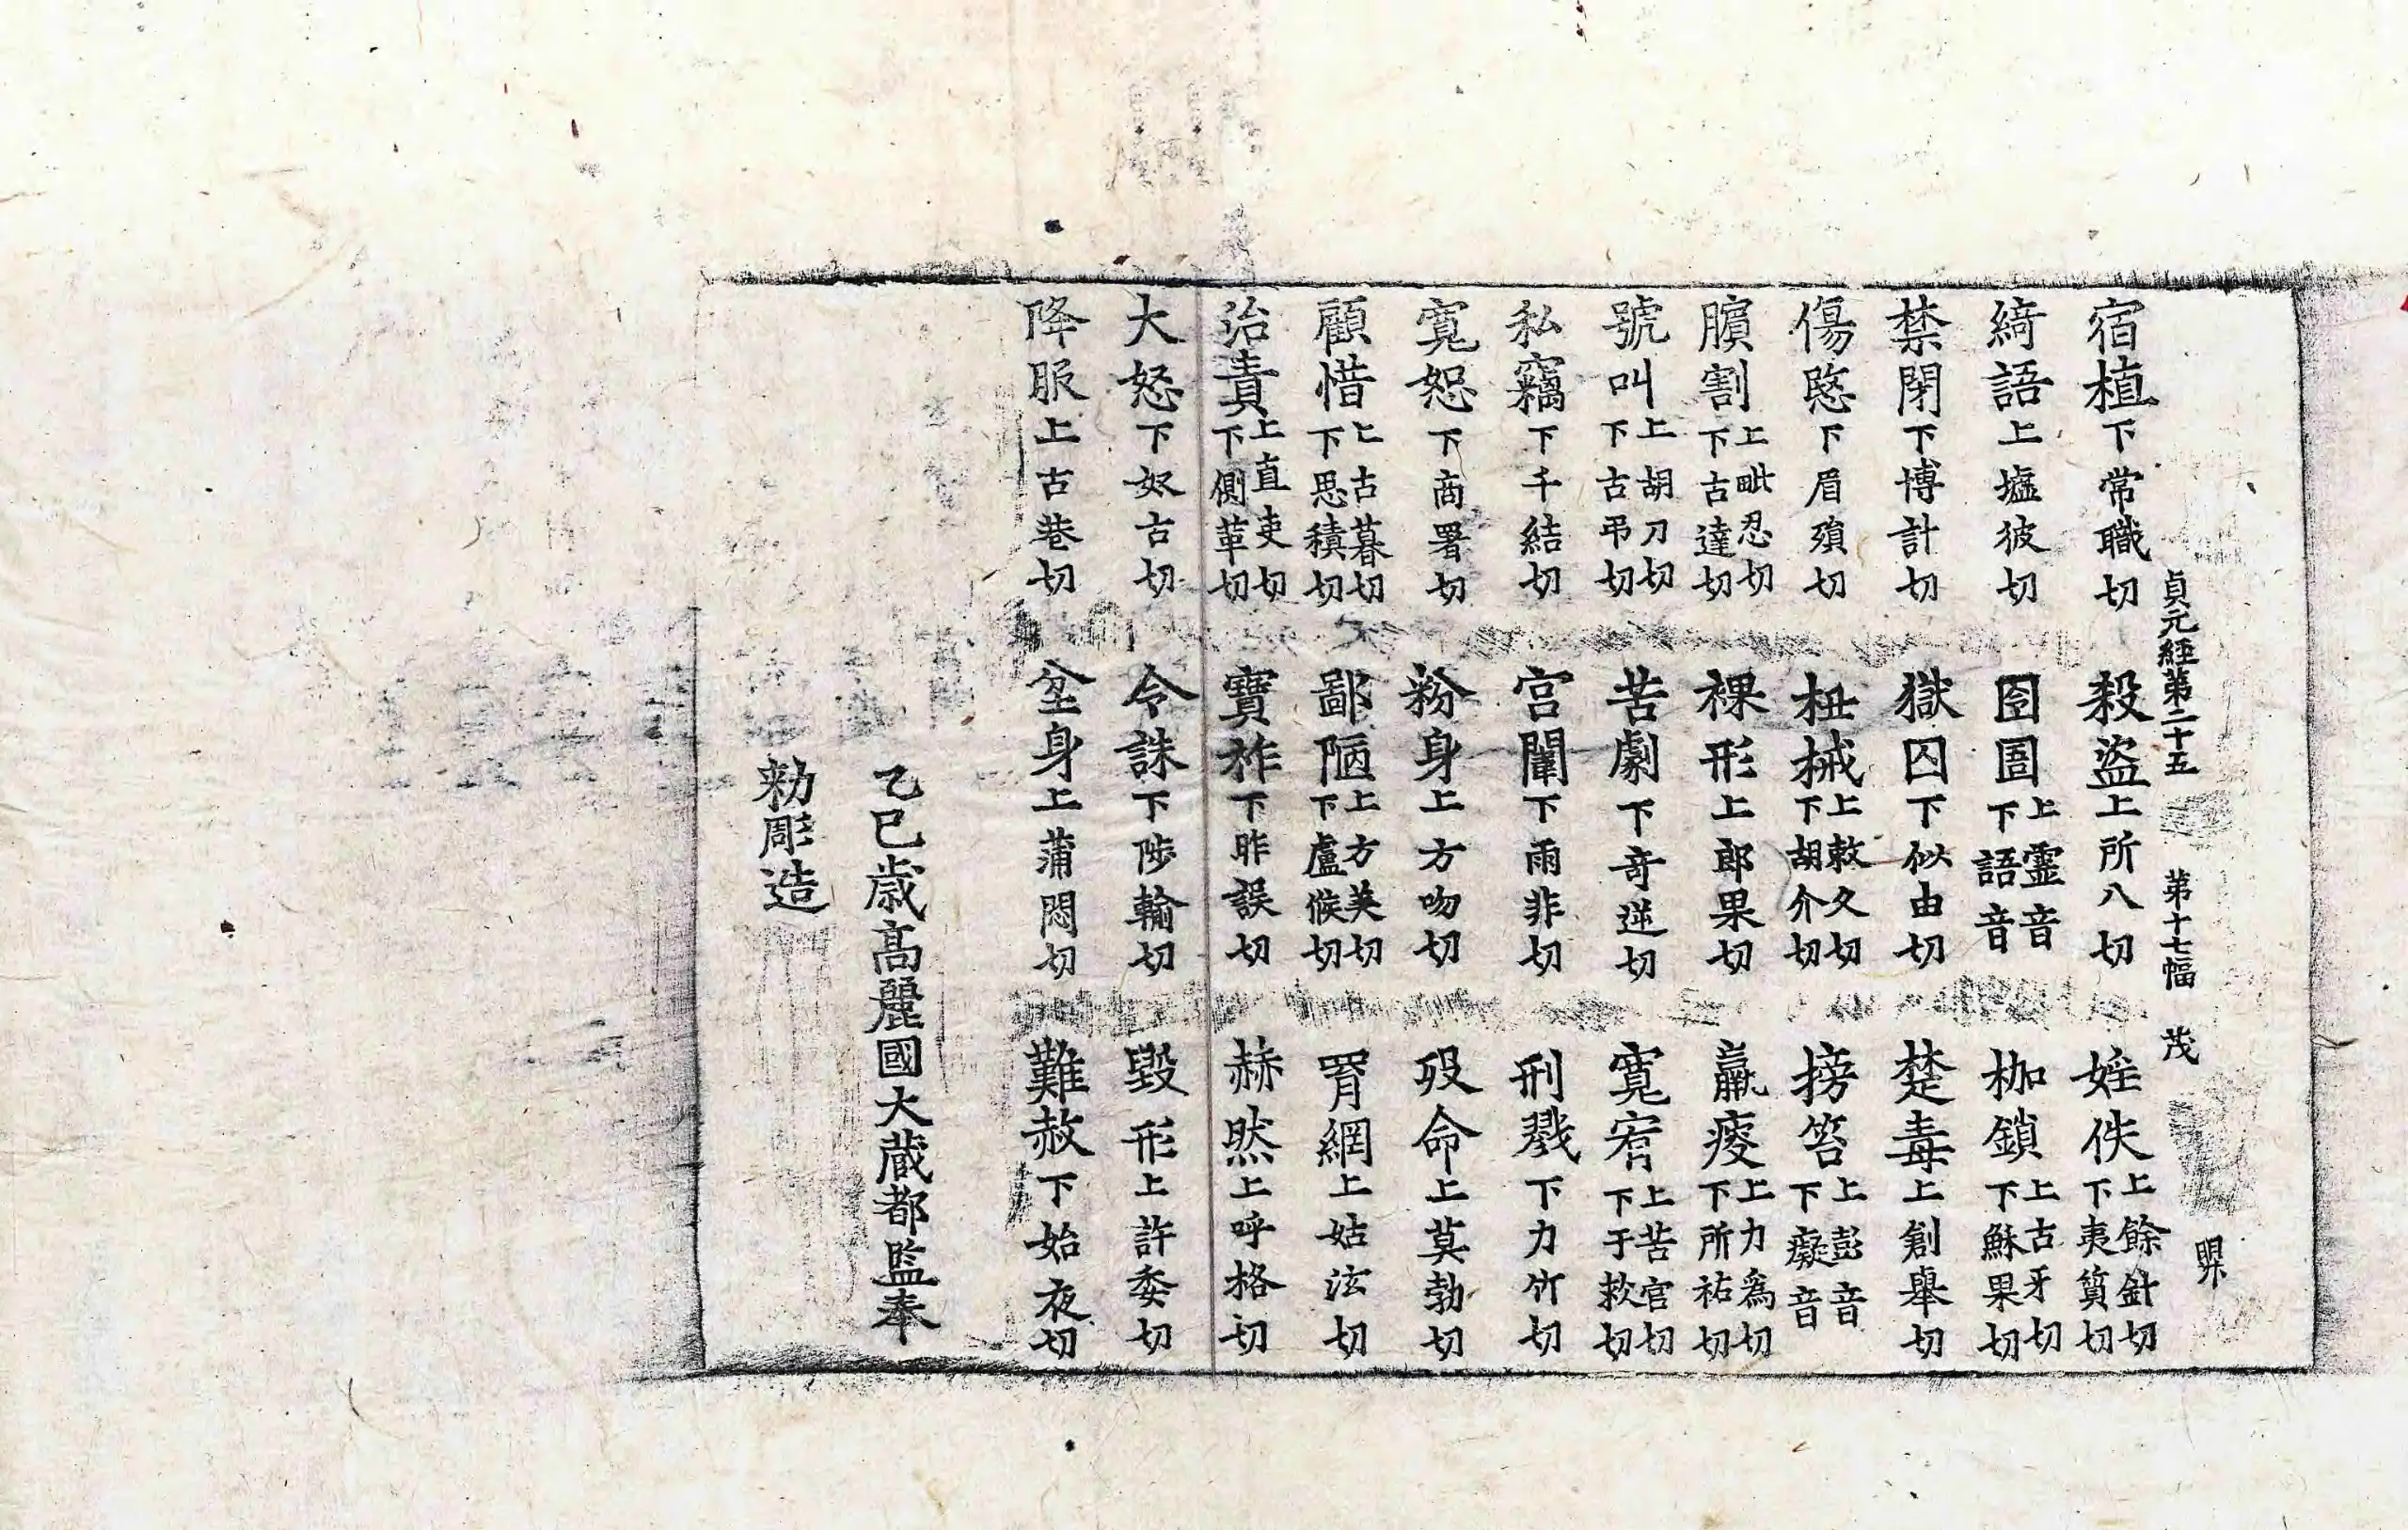 貞元經第二十五 第十七幅 茂
宿植下常職切 殺盜上所八切 婬佚上餘針切下夷質切
綺語上墟彼切 囹圄上靈音下語音 枷鎖上古牙切下穌果切
禁閉下博計切 獄囚下似由切 楚毒上創舉切
傷愍下眉殞切 杻械上敕久切下胡介切 搒笞上彭音下癡音
臏割上毗忍切下古達切 裸形上郎果切 羸瘦上力爲切下所祐切
號叫上胡刀切下古弔切 苦劇下奇逆切 寬宥上苦官切下于救切
私竊下千結切 宮闈下雨非切 刑戮下力竹切
寬恕下商署切 粉身上方吻切 歿命上莫勃切
顧惜上古暮切下思積切 鄙陋上方美切下盧候切 罥網上姑泫切
治責上直吏切下側革切 寶祚下昨誤切 赫然上呼格切
大怒下奴古切 令誅下陟輸切 毀形上許委切
降服上古巷切 坌身上蒲悶切 難赦下始夜切
乙巳歲高麗國大藏都監奉
勅彫造